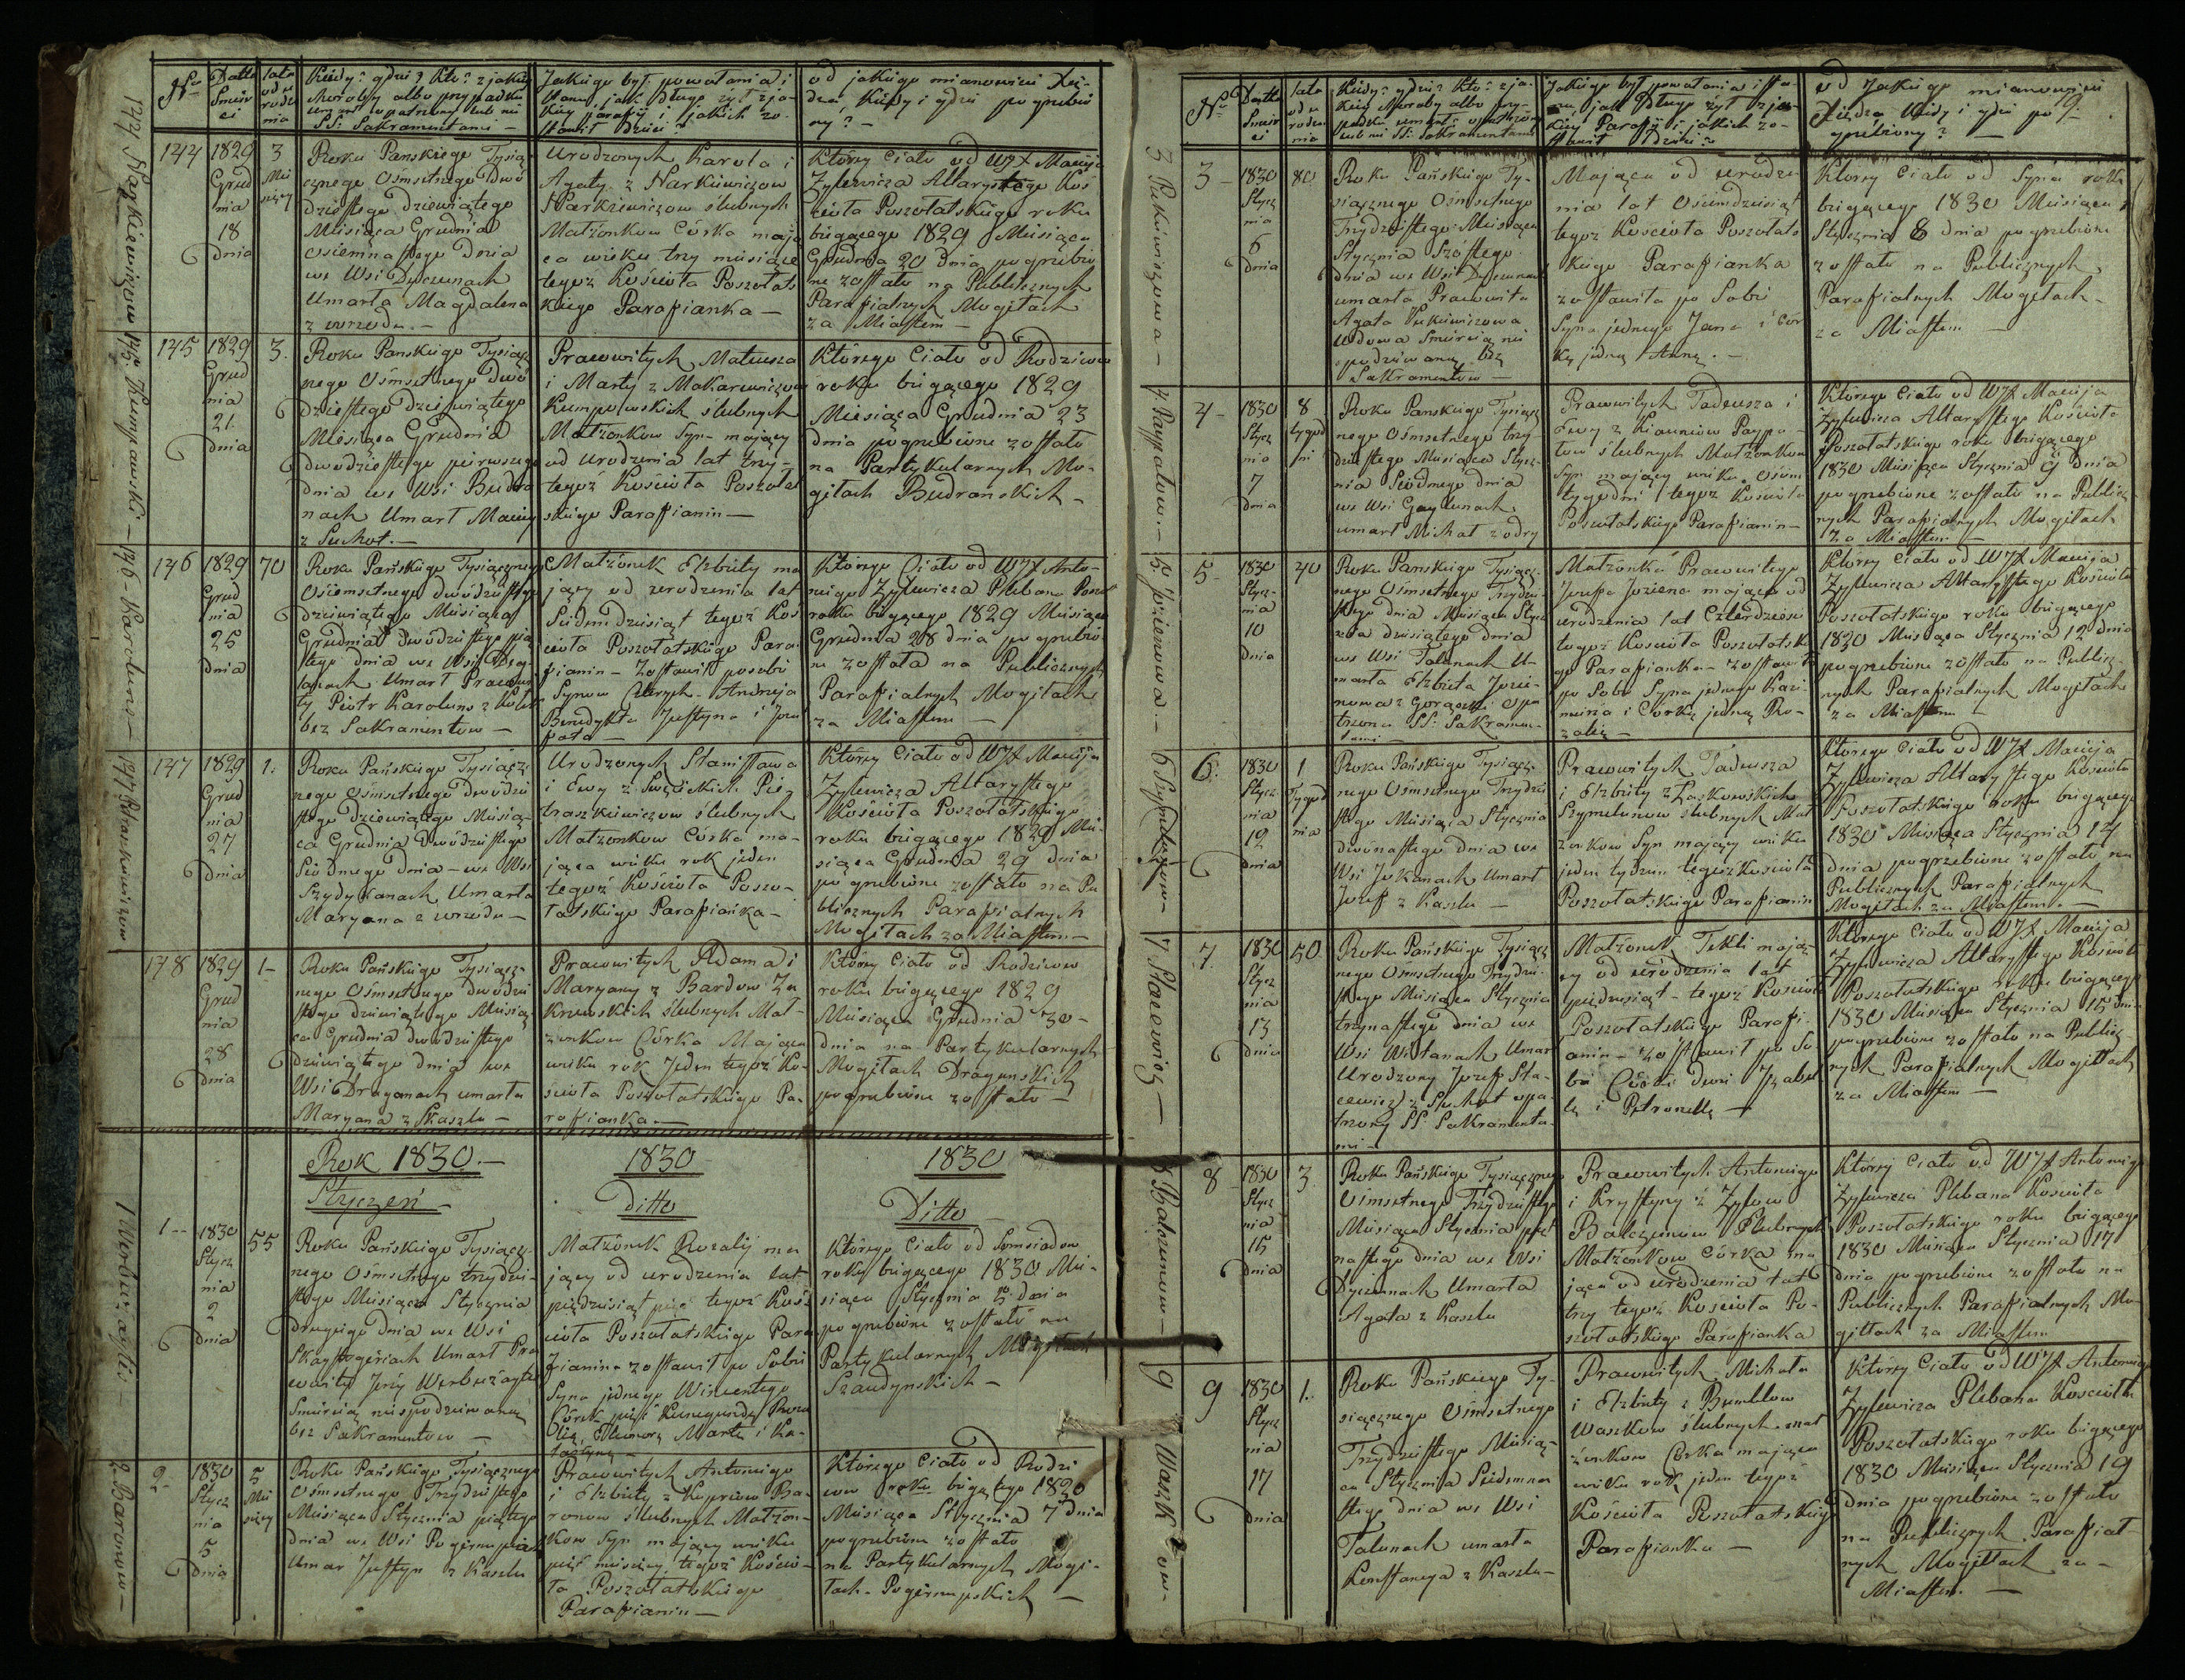 Nro
Datta
Śmier
ci
lata
od u
rodze
nia
Kiedy? gdzie? Kto? z jakiey
choroby albo przypadku
umarł opatrzony lub nie
SS: Sakramentami —
Jakiego był powołania i
Stanu, jak długo żył z ja-
kiey parafij i jakich zo-
stawił dzieci?
od jakiego mianowicie Xię-
dza, Kiedy i gdzie pogrzebio
ny? —
144 Narkiewiczow
144
1829
Grud
nia
18
dnia
3
Mie
sięcy
Roku Panskiego Tysią-
cznego Osmsetnego Dwó
dziestego dziewiątego
Miesiąca Grudnia
osiemnastego dnia
we Wsi Dyczunach
Umarła Magdalena
z wrzodu. —
Urodzonych Karola i
Agaty z Narkiewiczow
Narkiewiczow ślubnych
Małżonkow Córka mają
ca wieku trzy miesiące
tegoż Kościoła Poszołats
kiego Parafianka —
Którey Ciało od WJX Macieja
Żylewicza Altarystego Koś
cioła Poszołatskiego roku
biegącego 1829 Miesiąca
Grudnia 20 dnia pogrzebio
ne zostało na Publicznych
Parafialnych Mogiłach
za Miastem —
145
1829
Grud
nia
21.
dnia
3.
Roku Panskiego Tysiącz
nego Ośmsetnego Dwó
dziestego dziewiątego
Miesiąca Grudnia
dwódziestego pierwszego
dnia we Wsi Budra
nach Umarł Maciey
z Suchot. —
Prawowitych Mateusza
i Marty z Makarewiczow
Kumpowskich ślubnych
Małżonkow Syn mający
od urodzenia lat trzy —
tegoż Kościoła Poszołat
skiego Parafianin —
Którego Ciało od Rodzicow
roku biegącego 1829
Miesiąca Grudnia 23
dnia pogrzebione zostało
na Partykularnych Mo-
giłach Budranskich —
146 Karoluns —
146
1829
Grud
nia
25
dnia
70
Roku Pańskiego Tysiącznego
Ośiemsetnego dwódziestego
dziewiątego Miesiąca
Grudnia dwódziestego pią
tego dnia we Wsi
Umarł Prawowi
ty Piotr Karoluns z Kolek
bez Sakramentow —
Małżonek Elzbiety ma
jący od urodzenia lat
Siedmdziesiąt tegoż Koś
cioła Poszołatskiego Para
fianin — Zostawił po sobie
Synow Andrzeja
Benedykta Justyna i Joza
fata —
Którego Ciało od WJX Anto-
niego Żylewicza Plebana Poszoł
roku biegącego 1829 Miesiąca
Grudnia 28 dnia pogrzebio
ne zostało na Publicznych
Parafialnych Mogiłach
za Miastem —
147 Pietraszkiewiczow
147
1829
Grud
nia
27
dnia
1.
Roku Pańskiego Tysiącz-
nego Ośmsetnego dwódzie
stego Dziewiątego Miesią-
ca Grudnia Dwódziestego
Siódmego dnia — we Wsi
Szydyskanach Umarła
Maryana z wrzodu —
Urodzonych Stanisława
i Ewy z Pie-
traszkiewiczow ślubnych
Małżonkow Córka ma-
jąca wieku rok jeden
tegoż Kościoła Poszo-
łatskiego Parafianka —
Którey Ciało od WJX Macieja
Żylewicza Altarystego
Kościoła Poszołatskiego
roku biegącego 1829 Mie-
siąca Grudnia 29 dnia
pogrzebione zostało na Pu
blicznych Parafialnych
Mogiłach za Miastem —
148
1829
Grud
nia
28
dnia
1 —
Roku Pańskiego Tysiącz-
nego Ośmsetnego dwódzie
stego dziewiątego Miesią-
ca Grudnia dwódziestego
dziewiątego dnia we
Wsi Draganach umarła
Maryana z Kaszlu —
Prawowitych Adama i
Maryany z Bardow Za
krzewskich ślubnych Mał-
żonkow Córka Mająca
wieku rok Jeden tegoż Ko-
ścioła Poszołatskiego Pa-
rafianka. —
Którey Ciało od Rodzicow
roku biegącego 1829
Miesiąca Grudnia 30 —
dnia na Partykularnych
Mogiłach Dragunskich
pogrzebione zostało —
Rok 1830. —
1830
1830
Styczeń —
Ditto
Ditto
1 —
1830
Stycz
nia
2
dnia
55
Roku Pańskiego Tysiącz-
nego Ośmsetnego trzydzie-
stego Miesiąca Stycznia
drugiego dnia we Wsi
Umarł Pra
wowity Jerzy
Śmiercią niespodziewaną
bez Sakramentow —
Małżonek Rozalij ma
jący od urodzenia lat
pięćdziesiąt pięć tegoż Koś
cioła Poszołatskiego Para
fianin — zostawił po Sobie
Syna jednego Wincentego
Córek pięć Kunegundę Roza
lię, Eleonorę Martę i Ka-
tarzynę —
Którego Ciało od Somsiadow
roku biegącego 1830 Mie-
siąca Stycznia 5 dnia
pogrzebione zostało na
Partykularnych Mogiłach
Szaudynskich —
2. Baronow —
2
1830
Stycz
nia
5
dnia
5
Mie
sięcy
Roku Pańskiego Tysiącznego
Ośmsetnego Trzydziestego
Miesiąca Stycznia piątego
dnia we Wsi
Umar Justyn z Kaszlu
Prawowitych Antoniego
i Elzbiety z Ba-
ronow ślubnych Małżon-
kow Syn mający wieku
pięć miesięcy tegoż Kościo-
ła Poszołatskiego
Parafianin —
Którego Ciało od Rodzi
cow roku biegącego 1830
Miesiąca Stycznia 7 dnia
pogrzebione zostało
na Partykularnych Mogi-
łach
Nro
Datta
Śmier
ci
lata
od u
rodze
nia
Kiedy? gdzie? Kto? z ja-
kiey choroby albo przy-
padku umarł? opatrzony
lub nie SS: Sakramentami
Jakiego był powołania i sta-
nu, jak długo żył z ja-
kiey Parafij i jakich zo-
stawił dzieci?
od Jakiego mianowicie
Xiędza Kiedy i gdzie po-
grzebiony? —
3 —
1830
Stycz
nia
6
dnia
80
Roku Pańskiego Ty-
siącznego Ośmsetnego
Trzydziestego Miesiąca
Stycznia Szóstego
dnia we Wsi Dyczunach
umarła Prawowita
Agata
Wdowa Śmiercią nie
spodziewaną bez
Sakramentow —
Mająca od urodze
nia lat Osiemdziesiąt
tegoż Kościoła Poszołats
kiego Parafianka
zostawiła po Sobie
Syna jednego Jana i Cór
kę jedną Annę. —
Którey Ciało od Syna roku
biegącego 1830 Miesiąca
Stycznia 8 dnia pogrzebione
zostało na Publicznych
Parafialnych Mogiłach —
za Miastem —
4 —
1830
Stycz
nia
7
dnia
8
tygod
ni
Roku Panskiego Tysiącz
nego Ośmsetnego trzy-
dziestego Miesiąca Stycz-
nia Siódmego dnia
we Wsi Gaylunach
umarł Michał z odry
Prawowitych Tadeusza i
Ewy z
ślubnych Małżonkow
Syn mający wieku ośm
tygodni tegoż Kościoła
Poszołatskiego Parafianin —
Którego Ciało od WJX Macieja
Żylewicza Altarystego Kościoła
Poszołatskiego roku biegącego
1830 Miesiąca Stycznia 9 dnia
pogrzebione zostało na Publicz
nych Parafialnych Mogiłach
za Miastem —
5 —
1830
Stycz-
nia
10
dnia
40
Roku Panskiego Tysiącz-
nego Ośmsetnego Trzydzie-
stego dnia Miesiąca Stycz
nia dziesiątego dnia
we Wsi Talunach U-
marła Elzbieta Jozie-
nowa z Gorączki opa
trzona SS: Sakramen-
tami —
Małżonka Prawowitego
Jozefa Joziena mająca od
urodzenia lat Czterdzieści
tegoż Kościoła Poszołatskie
go Parafianka — zostawiła
po Sobie Syna jednego Kazi-
mierza i Córkę jedną Ro-
zalię —
Którey Ciało od WJX Macieja
Żylewicza Altarystego Kościoła
Poszołatskiego roku biegącego
1830 Miesiąca Stycznia 12 dnia
pogrzebione zostało na Publicz-
nych Parafialnych Mogiłach
za Miastem —
6.
1830
Stycz
nia
12
dnia
1
Tygod
nia
Roku Pańskiego Tysiącz-
nego Ośmsetnego Trzydzie
stego Miesiąca Stycznia
dwónastego dnia we
Wsi Umarł
Jozef z Kaszlu —
Prawowitych Tadeusza
i Elzbiety z Laskowskich
ślubnych Mał
żonkow Syn mający wieku
jeden tydzien tegoż Kościoła
Poszołatskiego Parafianin
Którego Ciało od WJX Macieja
Żylewicza Altarystego Kościoła
Poszołatskiego roku biegącego
1830 Miesiąca Stycznia 14
dnia pogrzebione zostało na
Publicznych Parafialnych
Mogiłach za Miastem. —
7.
1830
Stycz
nia
13
dnia
50
Roku Pańskiego Tysiącz
nego Ośmsetnego Trzydzie-
stego Miesiąca Stycznia
trzynastego dnia we
Wsi Umar
Urodzony Jozef Sta-
cewicz z Suchot opa-
trzony SS: Sakramenta-
mi —
Małżonek Tekli mają-
cy od urodzenia lat
pięćdziesiąt — tegoż Kościoła
Poszołatskiego Parafi-
anin — zostawił po So
bie Córki dwie Izabel
lę i Petronellę —
Którego Ciało od WJX Macieja
Żylewicza Altarystego Kościoła
Poszołatskiego roku biegącego
1830 Miesiąca Stycznia 15 dnia
pogrzebione zostało na Publicz
nych Parafialnych Mogiłach
za Miastem —
8
1830
Stycz
nia
15
dnia
3
Roku Pańskiego Tysiącznego
Ośmsetnego Trzydziestego
Miesiąca Stycznia pięt
nastego dnia we Wsi
Dyczunach Umarła
Agata z Kaszlu
Prawowitych Antoniego
i Krystyny z Zylow
Balczunow Ślubnych
Małżonkow Córka ma
jąca od urodzenia lat
trzy tegoż Kościoła Po-
szołatskiego Parafianka
Którey Ciało od WJX Antoniego
Żylewicza Plebana Kościoła
Poszołatskiego roku biegącego
1830 Miesiąca Stycznia 17
dnia pogrzebione zostało na
Publicznych Parafialnych Mo-
giłach za Miastem
9 Waszkow —
9
1830
Stycz
nia
17
dnia
1.
Roku Pańskiego Ty-
siącznego Ośmsetnego
Trzydziestego Miesią-
ca Stycznia Siedemna
stego dnia we Wsi
Talunach umarła
Konstancya z Kaszlu —
Prawowitych Michała
i Elzbiety z Bumblow
Waszkow ślubnych mał
żonkow Corka mająca
wieku rok jeden tegoż
Kościoła Poszołatskiego
Parafianka —
Którey Ciało od WJX Antoniego
Żylewicza Plebana Kościoła
Poszołatskiego roku biegącego
1830 Miesiąca Stycznia 19
dnia pogrzebione zostało
na Publicznych Parafial-
nych Mogiłach za —
Miastem. —